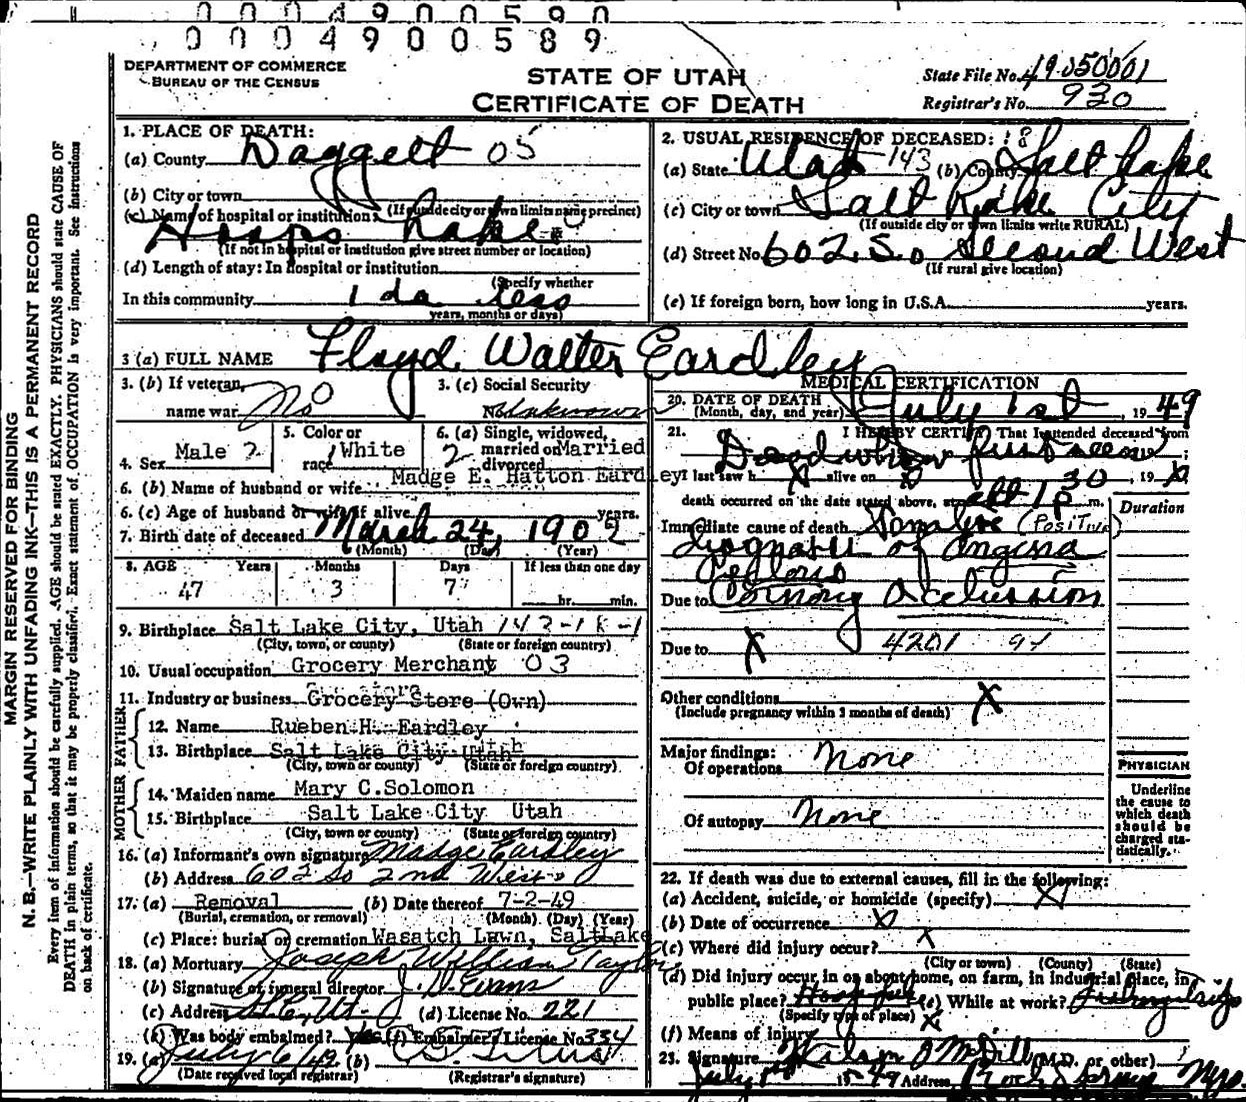 0 0 0 4 9 0 0 5 9 0
0 0 0 4 9 0 0 5 8 9
DEPARTMENT OF COMMERCE
BUREAU OF THE CENSUS
STATE OF UTAH
CERTIFICATE OF DEATH
State File No. 49050001
Registrar's No. 930
MARGIN RESERVED FOR BINDING
N. B.—WRITE PLAINLY WITH UNFADING INK—THIS IS A PERMANENT RECORD
Every item of information should be carefully supplied. AGE should be stated EXACTLY. PHYSICIANS should state CAUSE OF
DEATH in plain terms, so that it may be properly classified. Exact statement of OCCUPATION is very important. See instructions
on back of certificate.
1. PLACE OF DEATH:
(a) County Daggett 05
(b) City or town
(If outside city or town limits name precinct)
(c) Name of hospital or institution: Hoops Lake
(If not in hospital or institution give street number or location)
(d) Length of stay: In hospital or institution
(Specify whether
In this community 1 da less
years, months or days)
2. USUAL RESIDENCE OF DECEASED: 18
(a) State Utah 143 (b) County Salt Lake
(c) City or town Salt Lake City
(If outside city or town limits write RURAL)
(d) Street No. 602 So Second West
(If rural give location)
(e) If foreign born, how long in U.S.A. years.
3 (a) FULL NAME Floyd Walter Eardley
3. (b) If veteran, name war No
3. (c) Social Security No. Unknown
4. Sex Male 2
5. Color or race White
6. (a) Single, widowed, married or divorced Married 2
6. (b) Name of husband or wife Madge E. Hatton Eardley
6. (c) Age of husband or wife if alive years.
7. Birth date of deceased March 24, 1902
(Month) (Day) (Year)
8. AGE Years Months Days If less than one day
47 3 7 hr. min.
9. Birthplace Salt Lake City, Utah 143-18-1
(City, town, or county) (State or foreign country)
10. Usual occupation Grocery Merchant 03
11. Industry or business Grocery Store (Own)
FATHER
12. Name Rueben H. Eardley
13. Birthplace Salt Lake City Utah
(City, town or county) (State or foreign country)
MOTHER
14. Maiden name Mary C.Solomon
15. Birthplace Salt Lake City Utah
(City, town or county) (State or foreign country)
16. (a) Informant's own signature Madge Eardley
(b) Address 602 So 2nd West
17. (a) Removal (b) Date thereof 7-2-49
(Burial, cremation, or removal) (Month) (Day) (Year)
(c) Place: burial or cremation Wasatch Lawn, SaltLake
18. (a) Mortuary Joseph William Taylor
(b) Signature of funeral director J. D. Evans
(c) Address S.L.C. Ut. (d) License No. 221
(e) Was body embalmed? Yes (f) Embalmer's License No 334
19. (a) July 6/49 (b)
(Date received local registrar) (Registrar's signature)
MEDICAL CERTIFICATION
20. DATE OF DEATH
(Month, day, and year) July 1st, 1949
21. I HEREBY CERTIFY That I attended deceased from
Dead when first seen ;
I last saw h X alive on X, 19 X
death occurred on the date stated above, at 1 30 p m.
Duration
Immediate cause of death (Positive)
diagnosis of Angina
Pectoris
Due to Coronary Occlussion
Due to X 4201 94
Other conditions X
(Include pregnancy within 3 months of death)
Major findings:
Of operations None
Of autopsy None
PHYSICIAN
Underline
the cause to
which death
should be
charged sta-
tistically.
22. If death was due to external causes, fill in the following:
(a) Accident, suicide, or homicide (specify) X
(b) Date of occurrence X
(c) Where did injury occur? X
(City or town) (County) (State)
(d) Did injury occur in or about home, on farm, in industrial place, in
public place? (e) While at work? Fishing trip
(Specify type of place)
(f) Means of injury X
23. Signature (M.D. or other)
July 1949 Address Rock Springs Wyo.